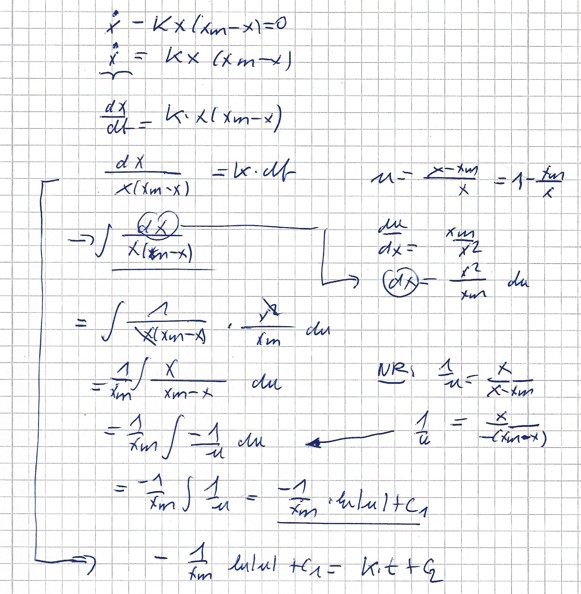 ẋ - Kx(xm-x)=0
ẋ = Kx (xm-x)
dx/dt = K·x(xm-x)
dx/x(xm-x) = K·dt
u = x-xm/x = 1-xm/x
→ ∫ dx/x(xm-x)
du/dx = xm/x²
dx = x²/xm du
= ∫ 1/x(xm-x) · x²/xm du
= 1/xm ∫ x/xm-x du
NR: 1/u = x/x-xm
= 1/xm ∫ -1/u du
1/u = x/-(xm-x)
= -1/xm ∫ 1/u = -1/xm · ln|u|+C1
- 1/xm ln|u| +C1 = K·t + C2